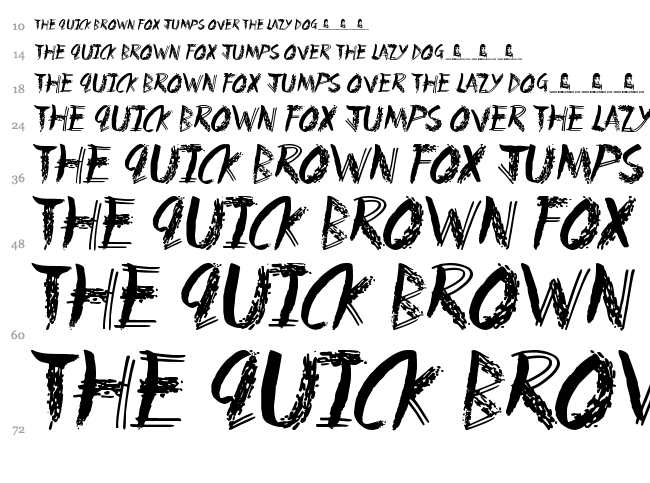 10 THE QUICK BROWN FOX JUMPS OVER THE LAZY DOG
14 THE QUICK BROWN FOX JUMPS OVER THE LAZY DOG
18 THE QUICK BROWN FOX JUMPS OVER THE LAZY DOG
24 THE QUICK BROWN FOX JUMPS OVER THE LAZY
36 THE QUICK BROWN FOX JUMPS
48 THE QUICK BROWN FOX
60 THE QUICK BROWN
72 THE QUICK BROW